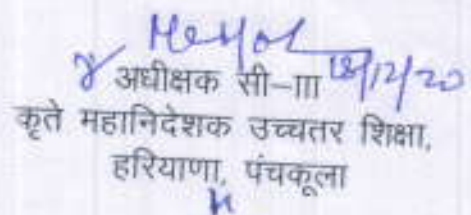 18/12/20
अधीक्षक सी-III
कृते महानिदेशक उच्चतर शिक्षा,
हरियाणा, पंचकूला